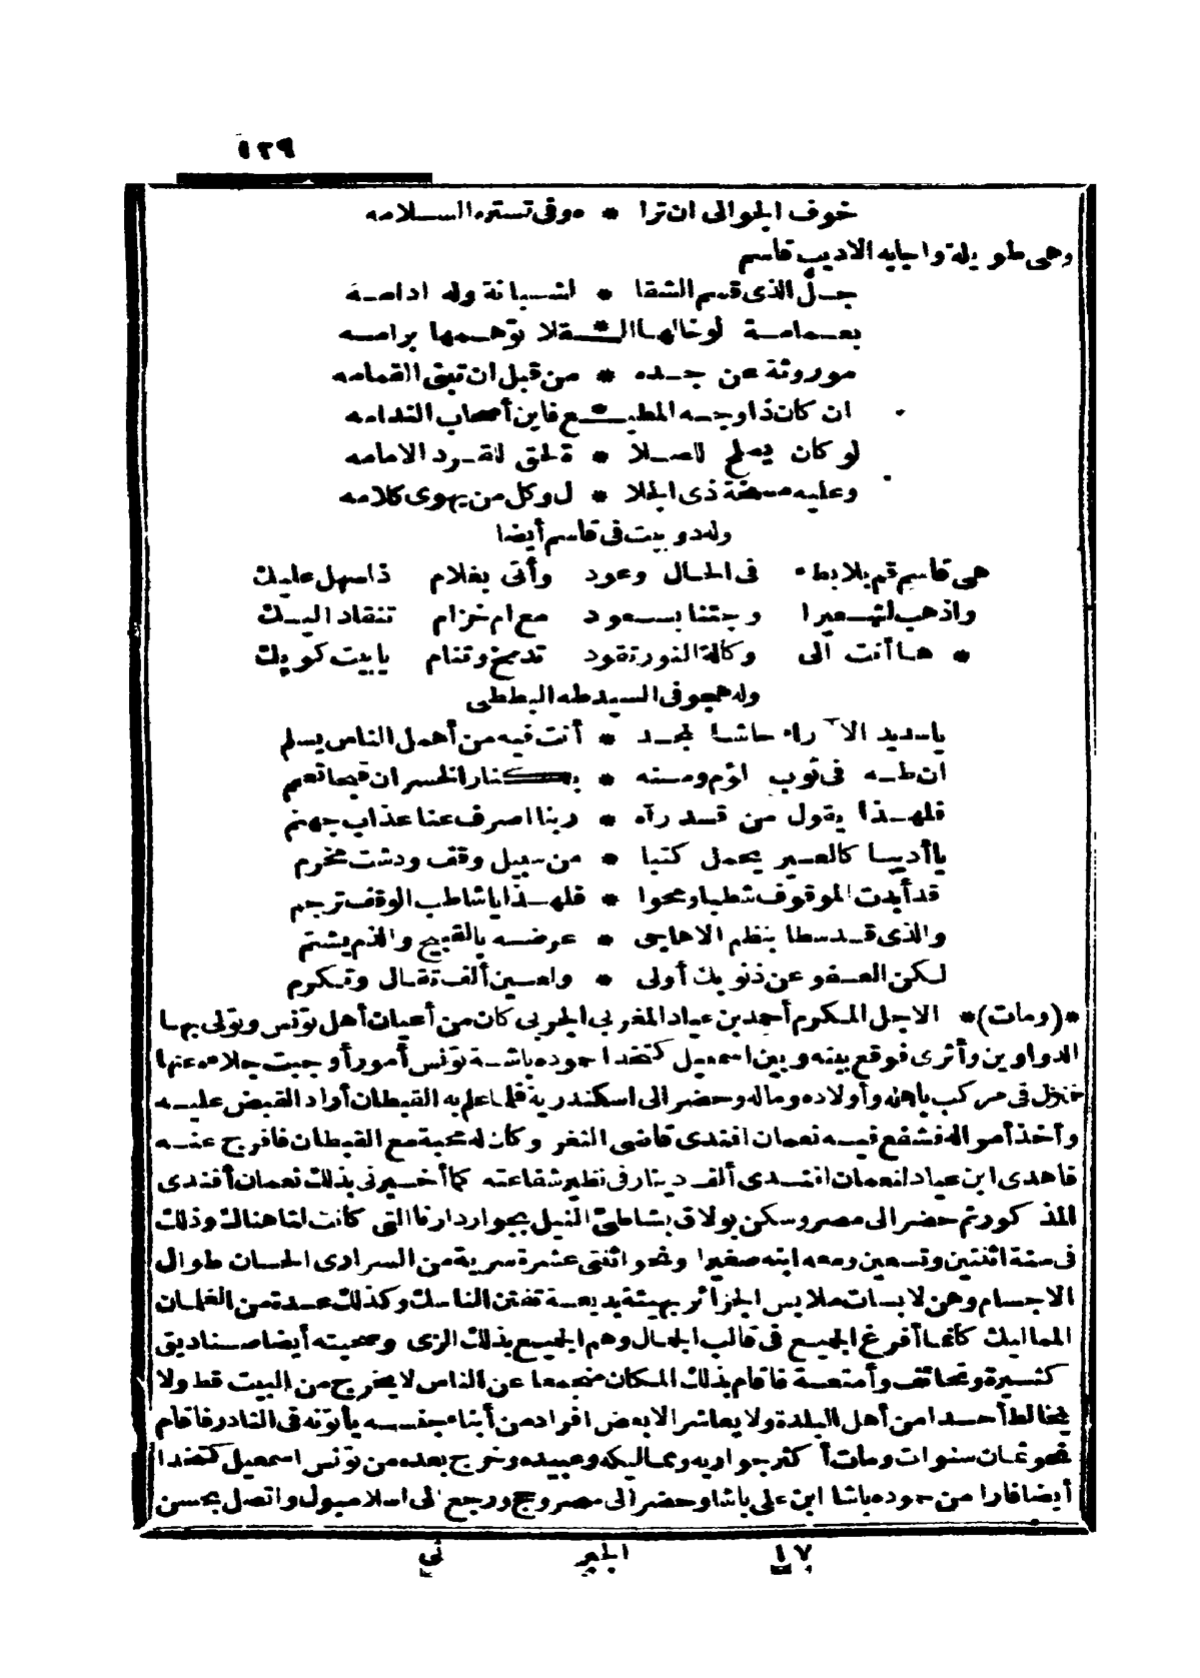 ١٢٩
خوف الجوالى ان ترا * ه وفى تستره السلامه
وهى طويلة واجابه الاديب قاسم
جل الذى قسم الشقا * لشبانة وله ادامه
بعمامة لو خالها الثقلا توهمها برامه
موروثة عن جده * من قبل ان تبنى القمامه
ان كان ذا وجه المطيع فاين أصحاب الندامه
لو كان يصلح للصلا * ة لحق للقرد الامامه
وعليه مسحة ذى الجلا * ل وكل من يهوى كلامه
وله دو بيت فى قاسم أيضا
هى قاسم قم بلا بطء فى الحال وعود وأتى بغلام ذا سهل عليك
واذهب لتهـ وجئنا بسعود مع ام خزام تنقاد اليك
* ها أنت الى وكالة النور تقود تدمخ وتنام يا بيت كويك
وله هجو فى السيد طه البططى
يا سديد الآراء حاشا لمجد * أنت فيه من أهمل الناس يسلم
ان طه فى ثوب لؤم ومسته * بك نار الخسران قبحا تعمم
فلهذا يقول من قد رآه * ربنا اصرف عنا عذاب جهنم
يا أديبا كالعير يحمل كتبا * من سبيل وقف ودشت مخرم
قد أبدت الموقوف شطبا ومحوا * فلهذا يا شاطب الوقف ترجم
والذى قد سطا بنظم الاهاجى * عرضه بالقبيح والذم يشتم
لكن العفو عن ذنوبك أولى * ولعين ألف تقال وتكرم
*(ومات)* الاجل المكرم أحمد بن عياد المغربى الجربى كان من أعيان أهل تونس وتولى بها
الدواوين وأثرى فوقع بينه وبين اسمعيل كتخدا حموده باشة تونس أمور أوجبت جلاءه عنها
فنزل فى مركب بأهله وأولاده وماله وحضر الى اسكندرية فلما علم به القبطان أراد القبض عليه
وأخذ أمواله فشفع فيه نعمان افندى قاضى الثغر وكان له محبة مع القبطان فافرج عنه
فاهدى ابن عياد لنعمان افندى ألف دينار فى نظير شفاعته كما أخبرنى بذلك نعمان أفندى
المذكور ثم حضر الى مصر وسكن بولاق بشاطئ النيل بجوار دارنا التى كانت لنا هناك وذلك
فى سنة اثنتين وتسعين ومعه ابنه صغيرا ونحو اثنتى عشرة سرية من السرارى الحسان طوال
الاجسام وهن لابسات ملابس الجزائر بهيئة بديعة تفتن الناسك وكذلك عدة من الغلمان
المماليك كأنما أفرغ الجميع فى قالب الجمال وهم الجميع بذلك الزى وصحبته أيضا صناديق
كثيرة وتحائف وأمتعة فاقام بذلك المكان منجمعا عن الناس لا يخرج من البيت قط ولا
يخالط أحدا من أهل البلدة ولا يعاشر الا بعض افراد من أبناء جنسه يأتونه فى النادر فاقام
نحو ثمان سنوات ومات أكثر جواريه ومماليكه وعبيده وخرج بعده من تونس اسمعيل كتخدا
أيضا فارا من حموده باشا ابن على باشا وحضر الى مصر وحج ورجع الى اسلامبول واتصل بحسن
١٧ الجبر نى